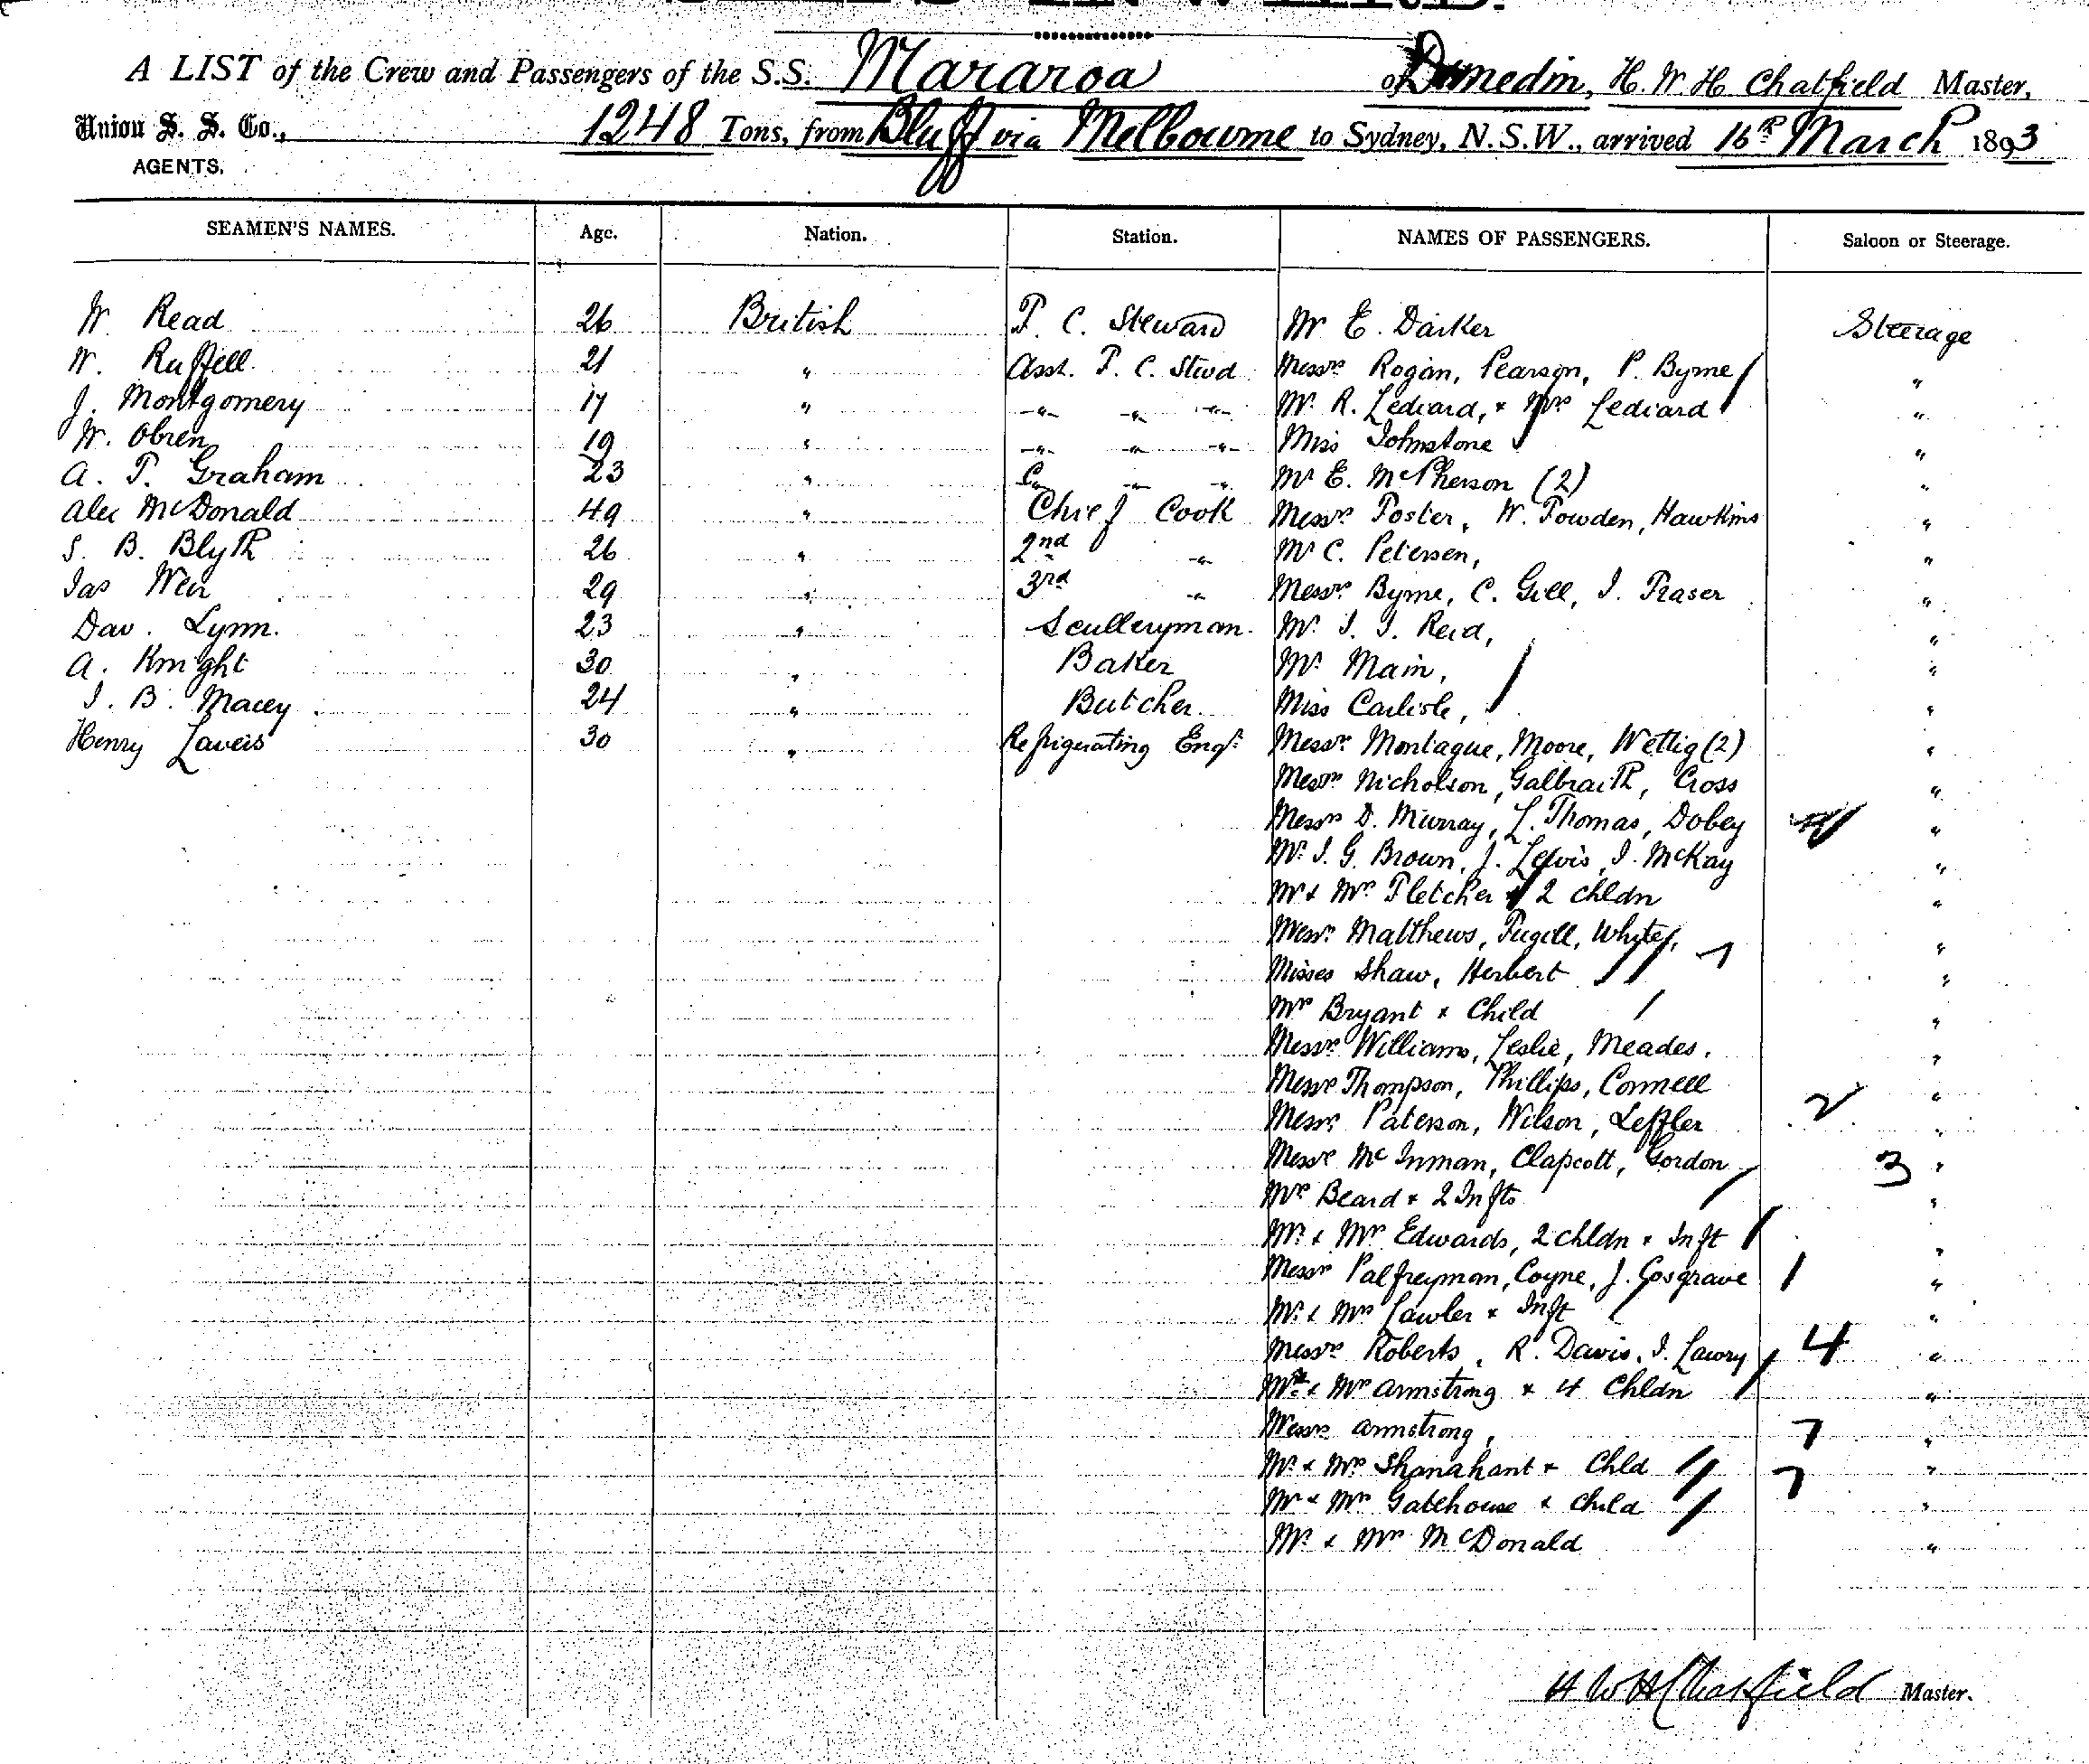 A LIST of the Crew and Passengers of the S.S. Mararoa of Dunedin, H. W. H. Chatfield Master,
Union S. S. Co., 1248 Tons, from Bluff via Melbourne to Sydney, N.S.W., arrived 16th March 1893
AGENTS.
SEAMEN'S NAMES. Age. Nation. Station. NAMES OF PASSENGERS. Saloon or Steerage.
W. Read 26 British F. C. Steward Mr E. Darker Steerage
W. Ruffell 21 " Asst. F. C. Stwd Messrs Rogan, Pearson, P. Byrne "
J. Montgomery 17 " " " " Mr. R. Lediard, & Mrs Lediard "
W. Obren 19 " " " " Miss Johnstone "
A. T. Graham 23 " " " Mr E. McPherson (2) "
Alec McDonald 49 " Chief Cook Messrs Foster, W. Fowden, Hawkins "
S. B. Blyth 26 " 2nd " Mr C. Petersen, "
Jas Weir 29 " 3rd " Messrs Byrne, C. Gill, J. Fraser "
Dav. Lynn. 23 " Sculleryman Mr. J. J. Reid, "
A. Knight 30 " Baker Mr. Main, "
J. B. Macey 24 " Butcher Miss Carlisle, "
Henry 30 " Refrigerating Engr. Messrs Montague, Moore, Wettig (2) "
Messrs Nicholson, Galbraith, Cross "
Messrs D. Murray, L. Thomas, Dobey "
Mr. J. G. Brown, J. Lewis, J. McKay "
Mr & Mrs Fletcher & 2 chldn "
Messrs Matthews, Fugill, White, "
Misses Shaw, Herbert "
Mrs Bryant & Child "
Messrs Williams, Leslie, Meades. "
Messrs Thompson, Phillips, Connell "
Messrs Paterson, Wilson, Leffler 2 "
Messrs McInman, Clapcott, Gordon 3 "
Mrs Beard & 2 Infts "
Mr. & Mrs Edwards, 2 chldn & Inft "
Messrs Palfreyman, Coyne, J. Cosgrave 1 "
Mr. & Mrs Lawler & Inft "
Messrs Roberts, R. Davis, J. Lawry 4 "
Mr & Mrs Armstrong & 4 Chldn "
Messrs Armstrong, 7 "
Mr. & Mrs Shanahant & Chld 7 "
Mr & Mrs Gatehouse & Child "
Mr. & Mrs McDonald "
H W H Chatfield Master.